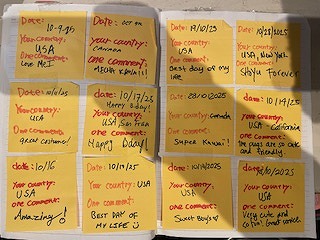 Date:
10-9-25
Your country:
USA
one comment:
Love MEI
Date: oct 9th
your country:
one comment:
Date: 19/10/25
Your country:
USA
One comment:
Best day of my
life
Date: 10/23/2025
your country:
USA, New York
one comment:
Shoyu Forever
Date:
Your country:
USA
one comment:
great costume!
date: 10/17/25
Happy Bday!
Your country:
USA, San Fran
One comment:
Happy Bday!
Date: 28/10/2025
Your country: Canada
One comment:
Super Kawaii!
date: 10/19/25
Your country:
USA California
one comment:
The pugs are so cute
and friendly.
date: 10/16
Your country:
USA
one comment:
Amazing!
Date: 10/19/25
Your country: USA
One comment:
BEST DAY OF
MY LIFE
Date: 10/19/2025
Your country:
USA
one comment:
Sweet Boys
date: /10/2025
Your country:
USA
one comment:
Very cute and